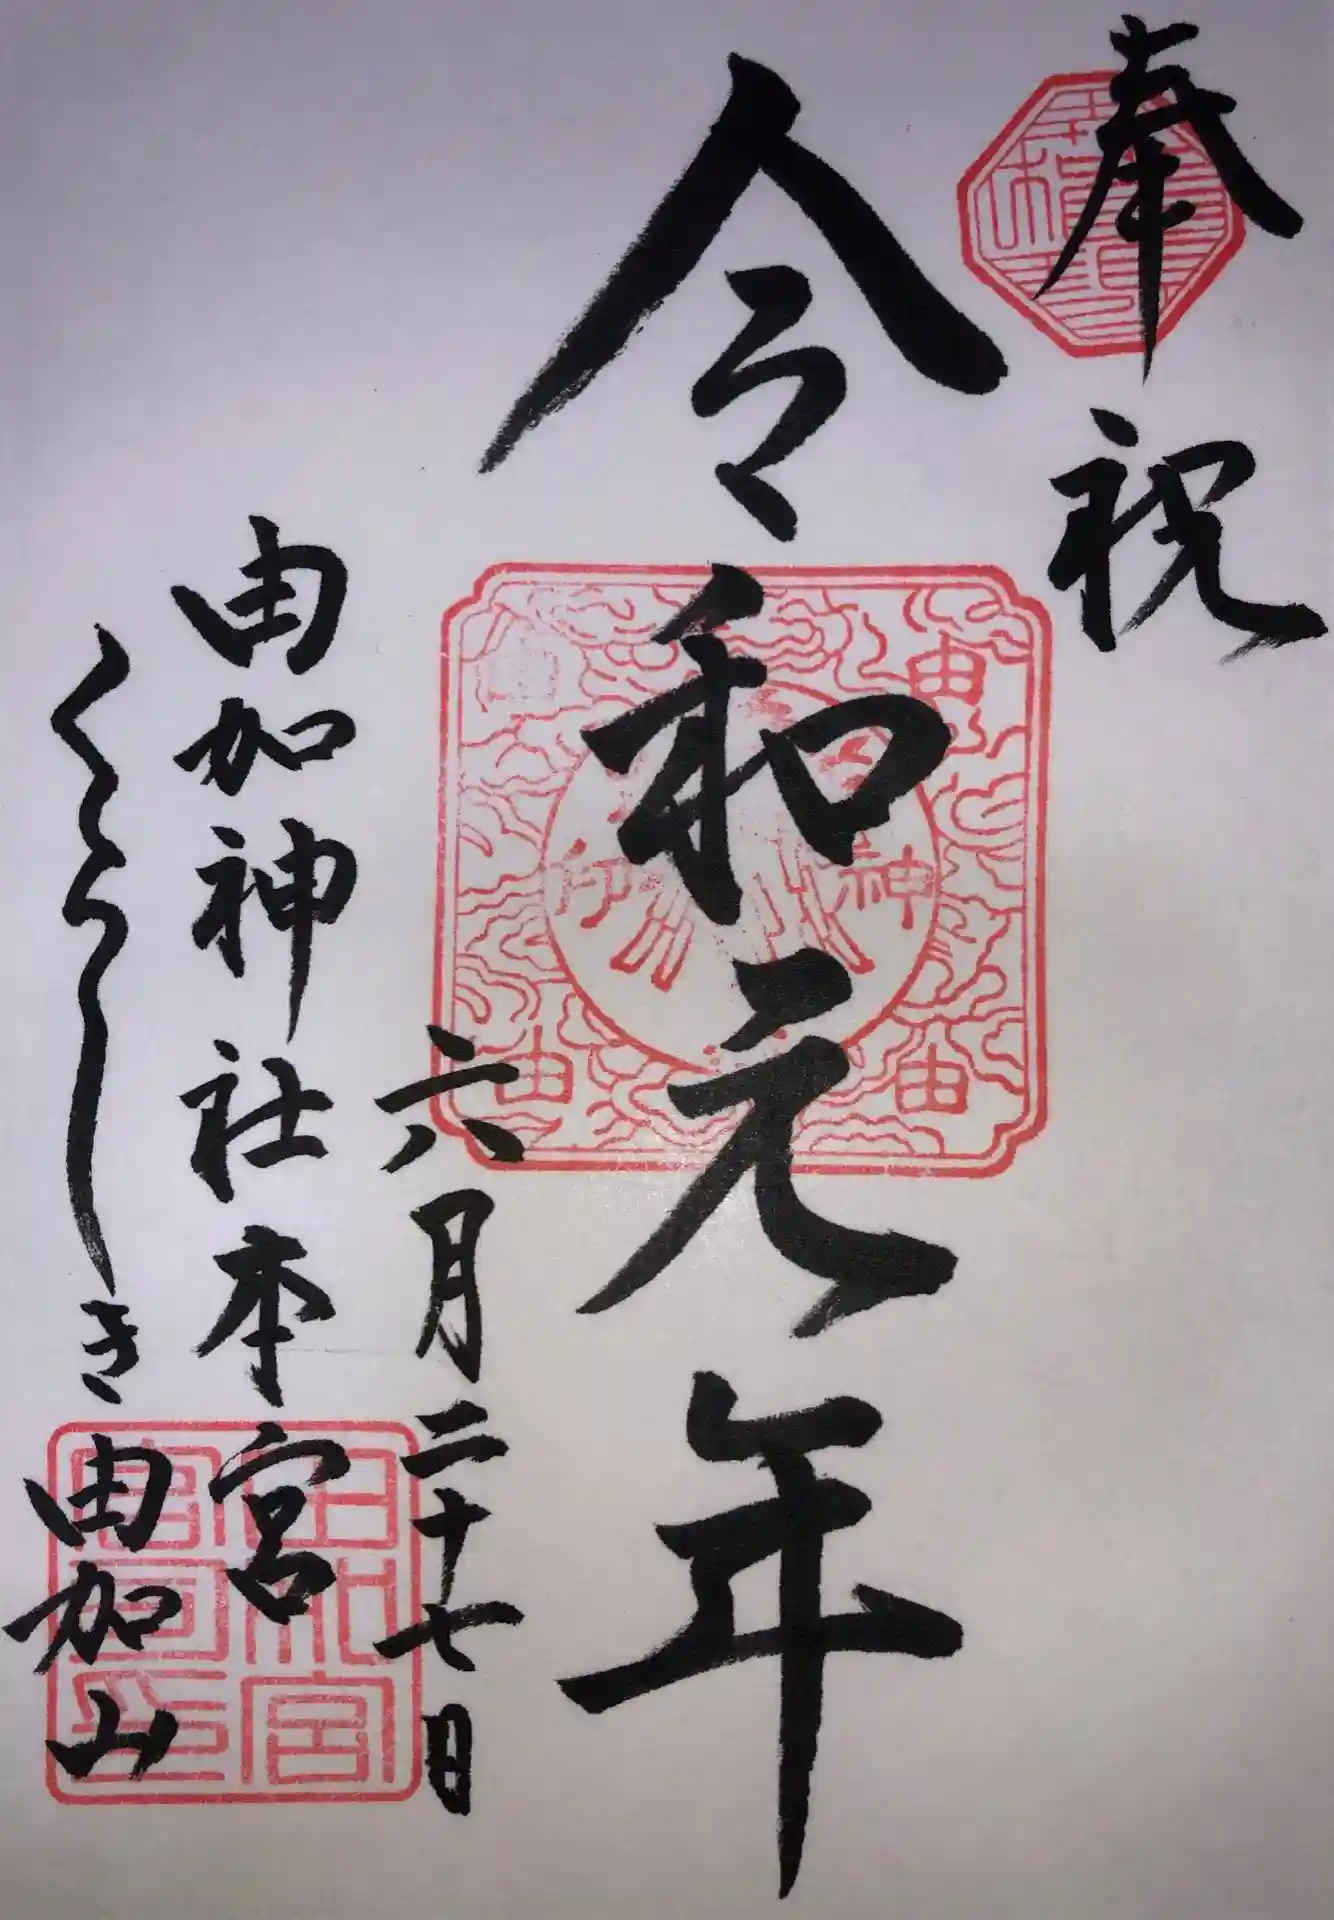 奉祝
令和元年
六月二十七日
由加神社本宮
由加山
由
由
由
神
印